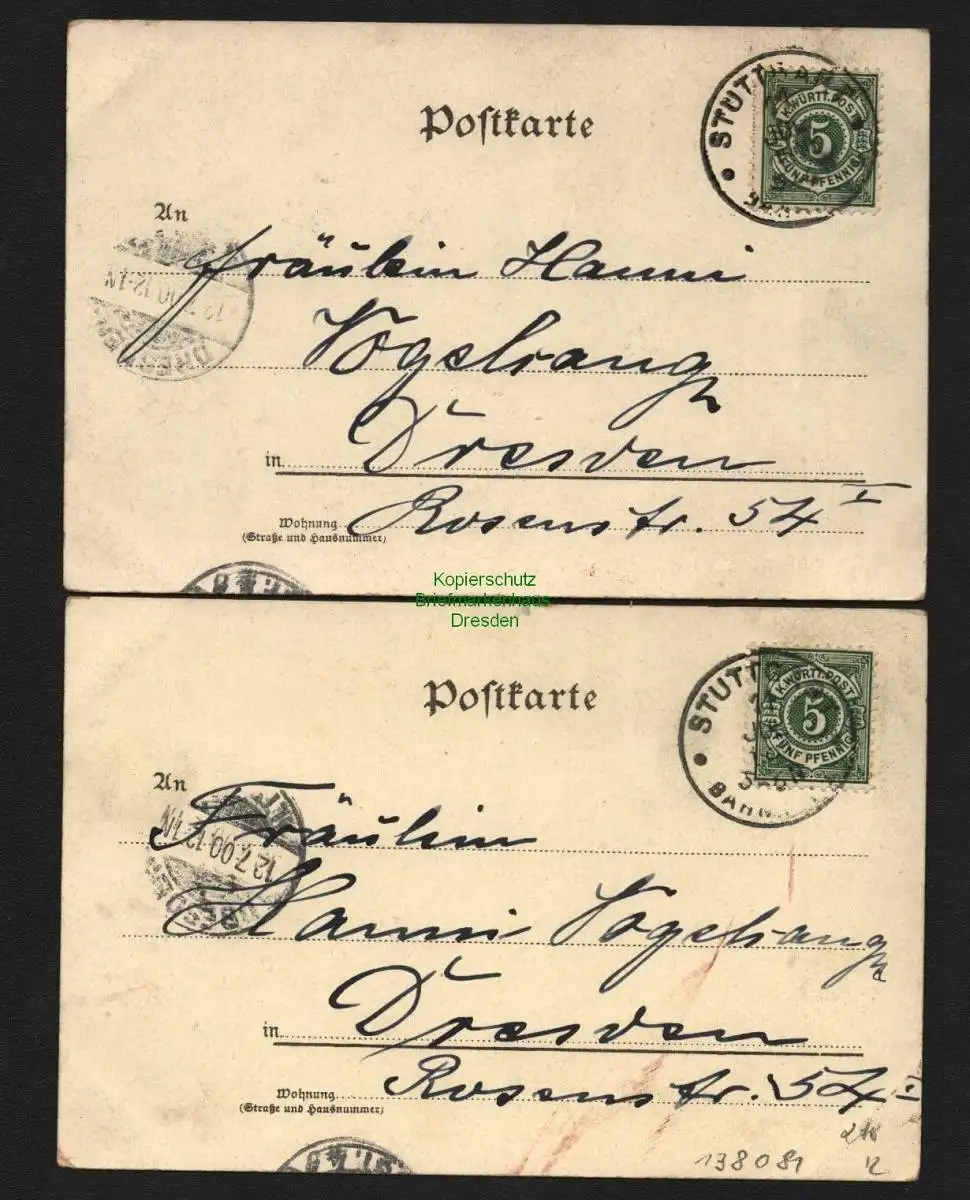 Postkarte
STUTTGART
K. WÜRTT. POST
5
FÜNF PFENNIG
An
Fräulein Hanni
12-1N
DRESDEN
Vogelsang
in Dresden
Wohnung
(Straße und Hausnummer)
Rosenstr. 54 I
Kopierschutz
Briefmarkenhaus
Dresden
Postkarte
STUTTG
K. WÜRTT. POST
5
FÜNF PFENNIG
BAHN
An
Fräulein
12.7.00.12-1N
DRESDEN
Hanni Vogelsang
in Dresden
Wohnung
(Straße und Hausnummer)
Rosenstr. 54 I
138081